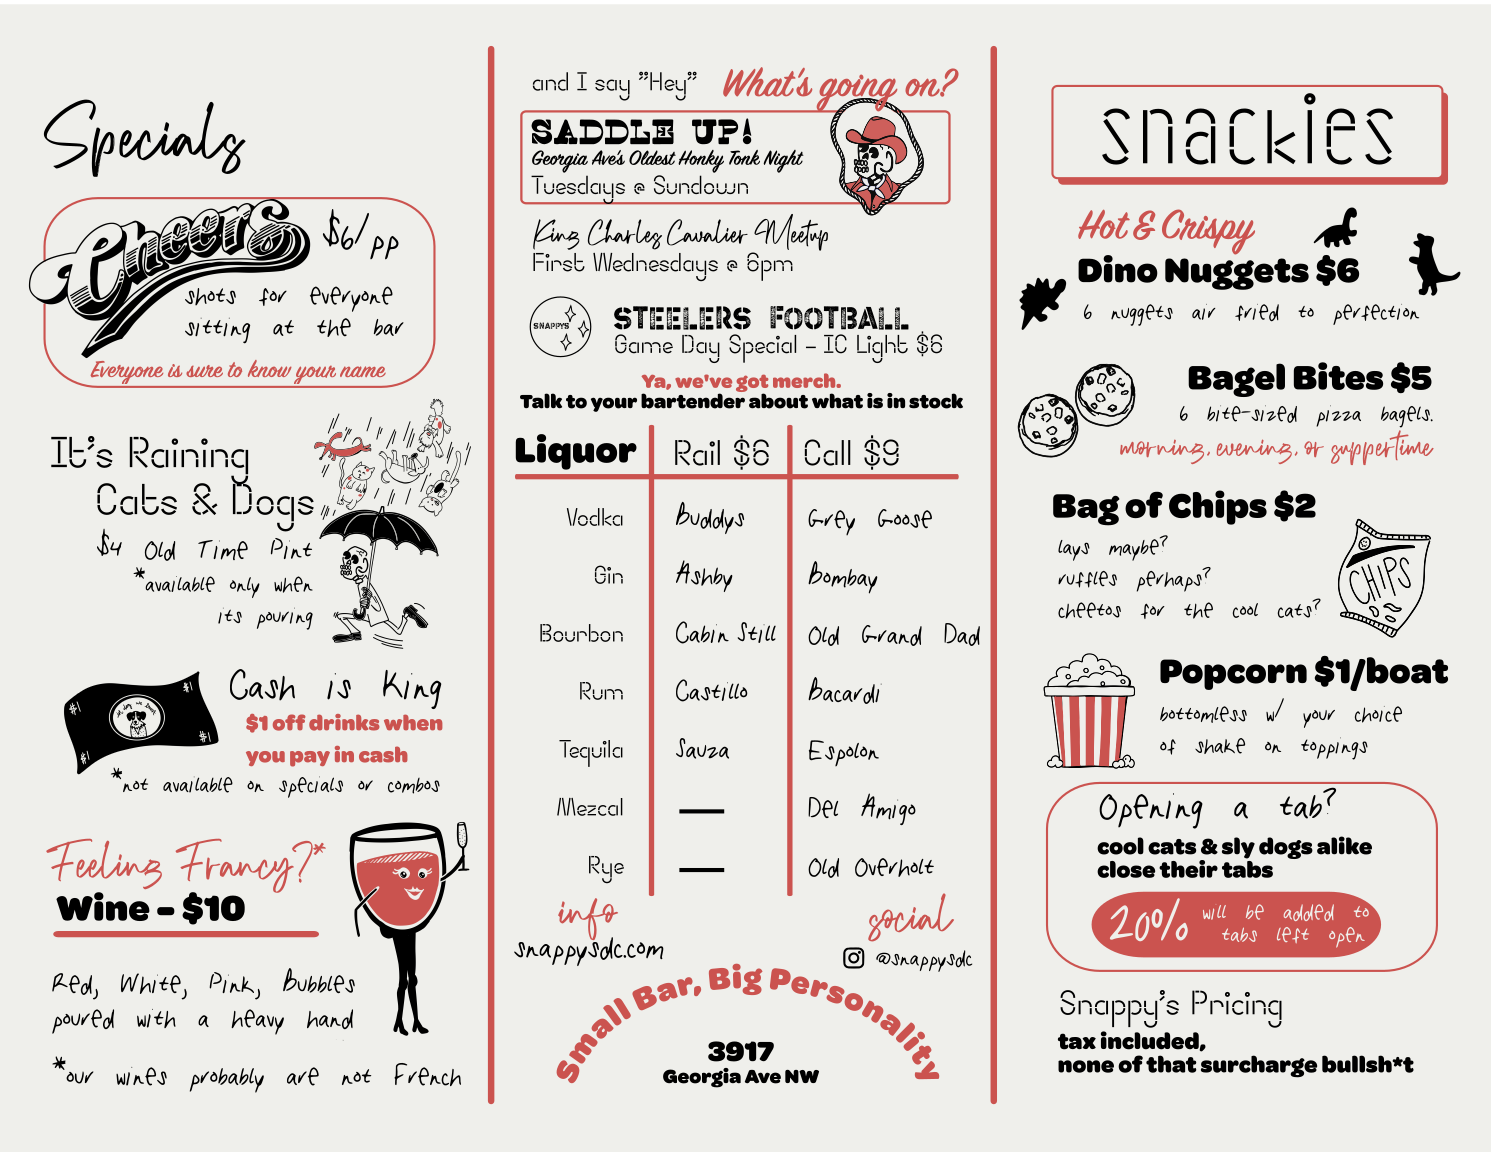 Specials
Cheers $6/pp
shots for everyone
sitting at the bar
Everyone is sure to know your name
It's Raining
Cats & Dogs
$4 Old Time Pint
*available only when
its pouring
#1 #1
#1 #1
Cash is King
$1 off drinks when
you pay in cash
*not available on specials or combos
Feeling Francy?*
Wine - $10
Red, White, Pink, Bubbles
poured with a heavy hand
*our wines probably are not French
and I say "Hey" What's going on?
SADDLE UP!
Georgia Ave's Oldest Honky Tonk Night
Tuesdays @ Sundown
King Charles Cavalier Meetup
First Wednesdays @ 6pm
SNAPPYS
STEELERS FOOTBALL
Game Day Special - IC Light $6
Ya, we've got merch.
Talk to your bartender about what is in stock
Liquor Rail $6 Call $9
Vodka Buddys Grey Goose
Gin Ashby Bombay
Bourbon Cabin Still Old Grand Dad
Rum Castillo Bacardi
Tequila Sauza Espolon
Mezcal — Del Amigo
Rye — Old Overholt
info social
snappysdc.com @snappysdc
Small Bar, Big Personality
3917
Georgia Ave NW
snackies
Hot & Crispy
Dino Nuggets $6
6 nuggets air fried to perfection
Bagel Bites $5
6 bite-sized pizza bagels.
morning, evening, or suppertime
Bag of Chips $2
lays maybe?
ruffles perhaps?
cheetos for the cool cats?
CHIPS
Popcorn $1/boat
bottomless w/ your choice
of shake on toppings
Opening a tab?
cool cats & sly dogs alike
close their tabs
20% will be added to
tabs left open
Snappy's Pricing
tax included,
none of that surcharge bullsh*t